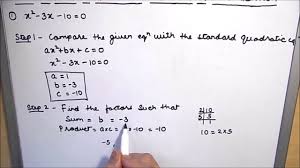 ① x² - 3x - 10 = 0
Step 1 - Compare the given eqⁿ with the standard quadratic eqⁿ
ax² + bx + c = 0
x² - 3x - 10 = 0
a = 1
b = -3
c = -10
Step 2 - Find the factors such that
Sum = b = -3
Product = a×c = -10 = -10
-5
2 | 10
5 | 5
1
10 = 2×5